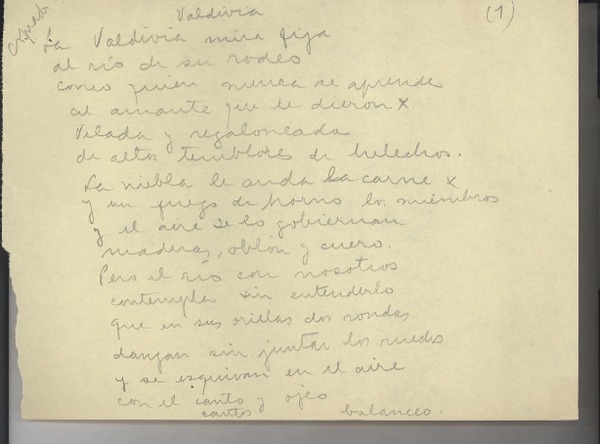 Valdivia
(1)
La Valdivia mira fija
al río de su rodeo
como quien nunca se aprende
al amante que le dieron x
Velada y regaloneada
de altos temblores de helechos.
La niebla le anda la carne x
y un fuego de horno los miembros
y el aire se lo gobiernan
maderas, oblón y cuero.
Pero el río con nosotros
contempla sin entenderlo
que en sus orillas dos rondas
danzan sin juntar los ruedos
y se esquivan en el aire
con el canto y ojeo
cantos balanceo.